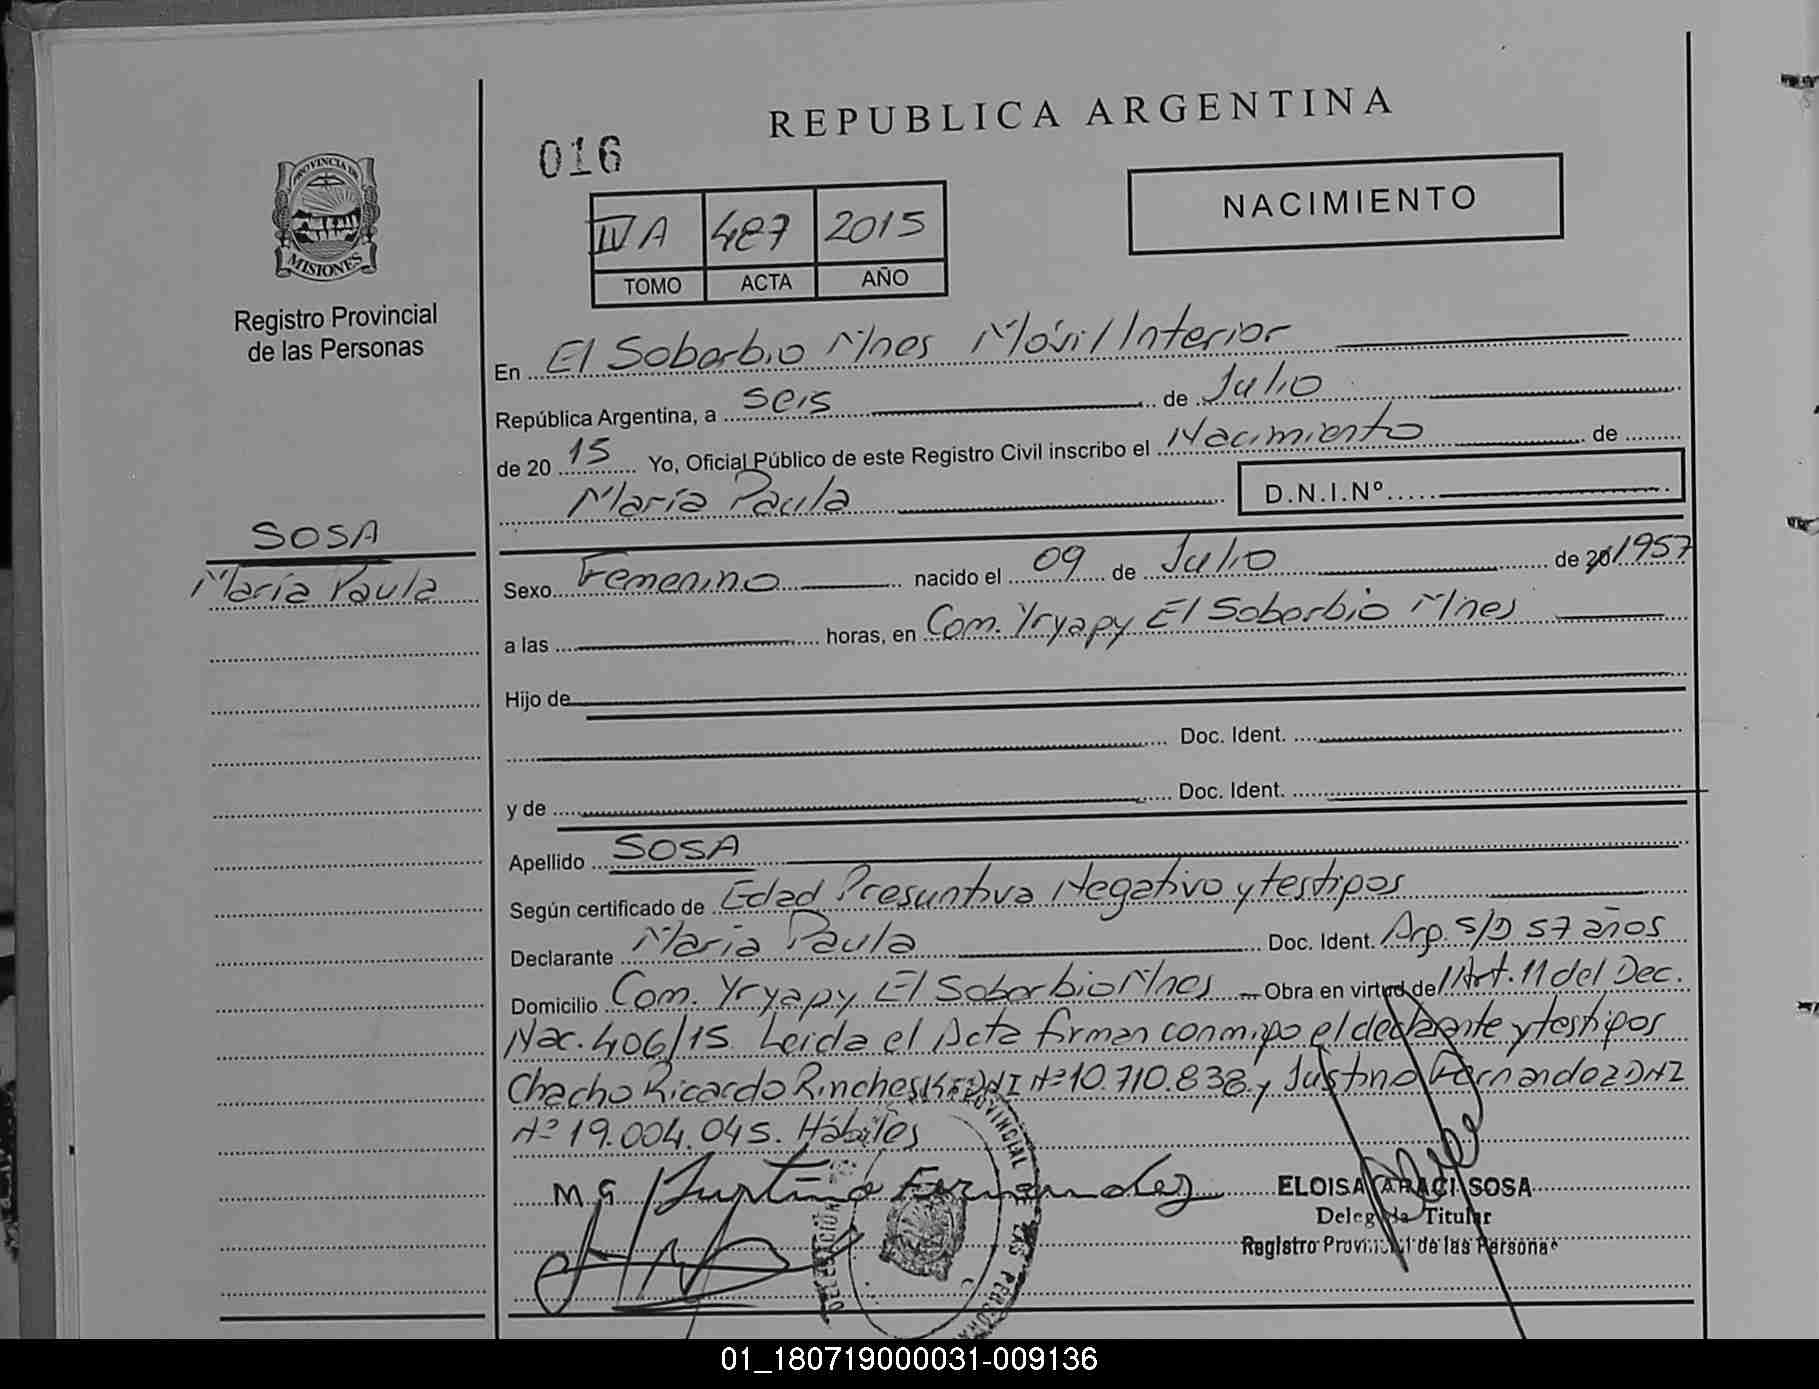 REPUBLICA ARGENTINA
016
NACIMIENTO
IV A 487 2015
TOMO ACTA AÑO
PROVINCIA DE
MISIONES
Registro Provincial
de las Personas
En El Soborbio Mnes Móvil Interior
República Argentina, a seis de Julio
de 20 15 Yo, Oficial Público de este Registro Civil inscribo el Nacimiento de
María Paula D.N.I.Nº
SOSA
María Paula
Sexo Femenino nacido el 09 de Julio de 20 1957
a las horas, en Com. Yryapy El Soborbio Mnes
Hijo de
Doc. Ident.
y de Doc. Ident.
Apellido SOSA
Según certificado de Edad Presuntiva Negativo y testigos
Declarante María Paula Doc. Ident. Arg. S/D 57 años
Domicilio Com. Yryapy El Soborbio Mnes Obra en virtud del Art. 11 del Dec.
Nac. 406/15. Leida el Acta firman conmigo el declarante y testigos
Chacho Ricardo DNI Nº 10.710.838 y Justino Fernandez DNI
Nº 19.004.045. Hábiles
M G Justino Fernandez
ELOISA ARACI SOSA
Delegada Titular
Registro Provincial de las Personas
DELEGACION PROVINCIAL DE LAS PERSONAS
01_180719000031-009136